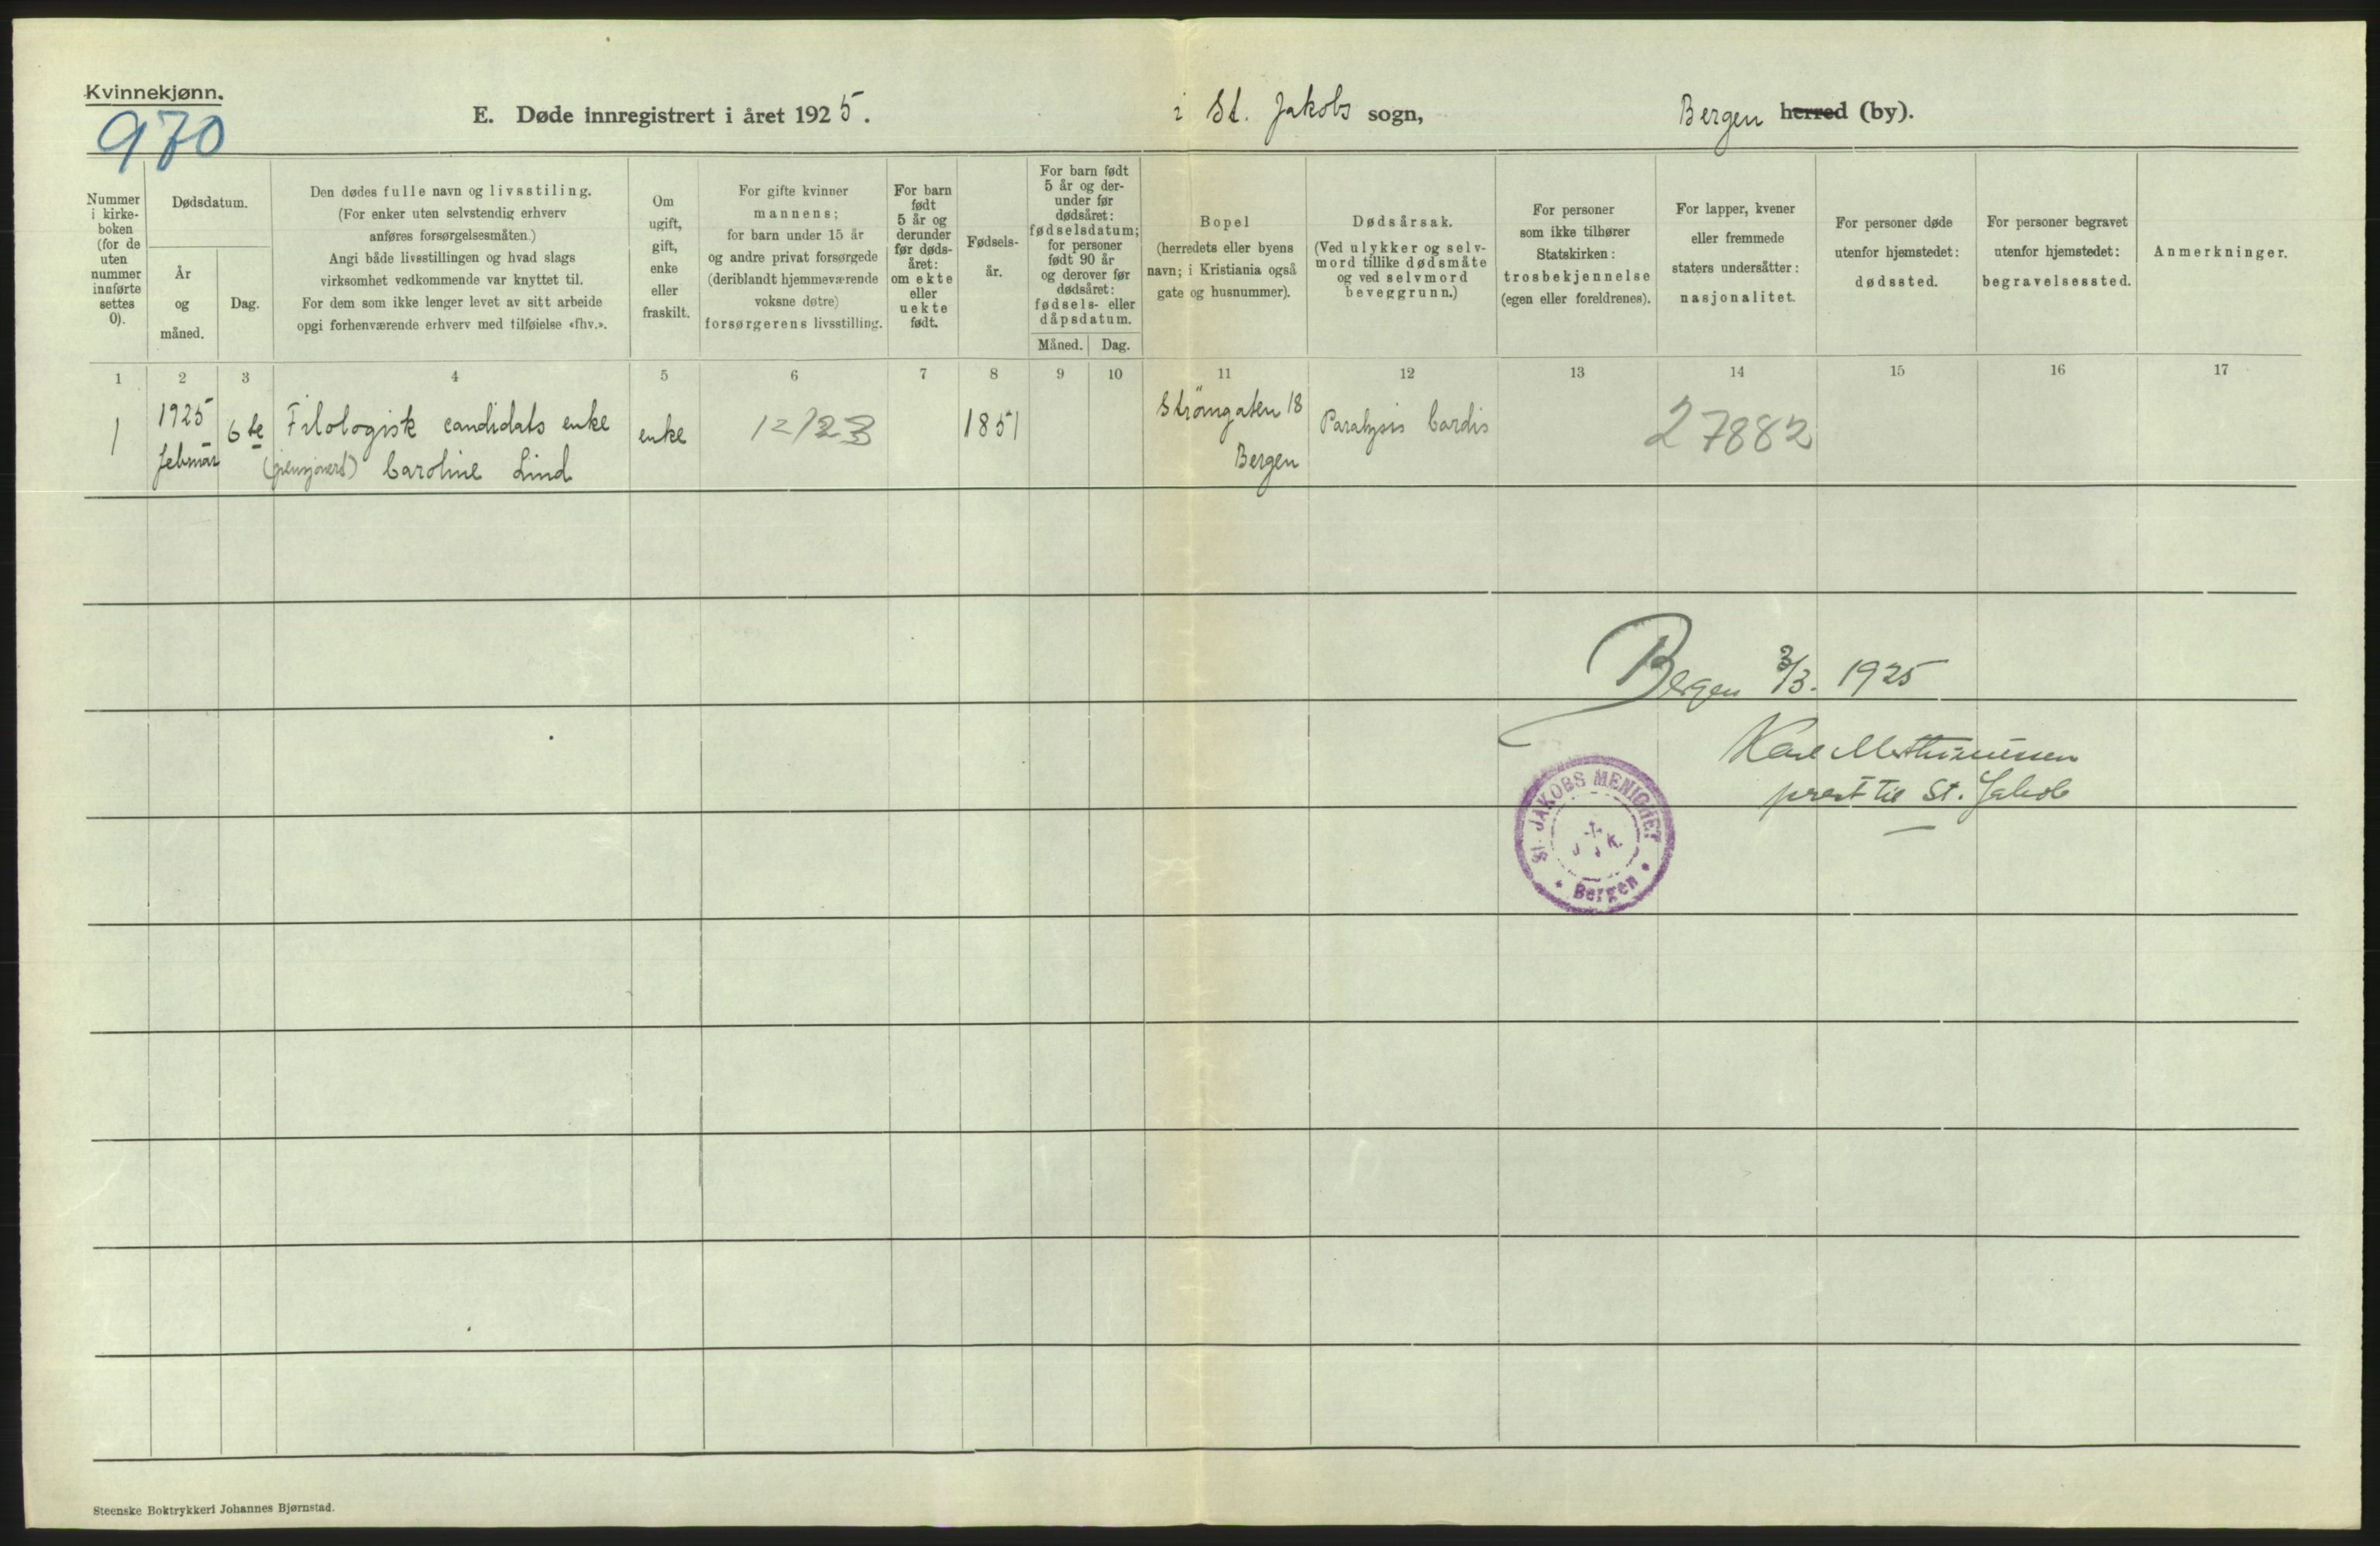 Kvinnekjønn.
970
E. Døde innregistrert i året 1925. i St. Jakobs sogn, Bergen herred (by).
Nummer i kirke-boken (for de uten nummer innførte settes 0).
Dødsdatum.
År og måned.
Dag.
Den dødes fulle navn og livsstiling.
(For enker uten selvstendig erhverv
anføres forsørgelsesmåten.)
Angi både livsstillingen og hvad slags
virksomhet vedkommende var knyttet til.
For dem som ikke lenger levet av sitt arbeide
opgi forhenværende erhverv med tilføielse «fhv.».
Om
ugift,
gift,
enke
eller
fraskilt.
For gifte kvinner
mannens;
for barn under 15 år
og andre privat forsørgede
(deriblandt hjemmeværende
voksne døtre)
forsørgerens livsstilling.
For barn
født
5 år og
derunder
før døds-
året:
om ekte
eller
uekte
født.
Fødsels-
år.
For barn født
5 år og der-
under før
dødsåret:
fødselsdatum;
for personer
født 90 år
og derover før
dødsåret:
fødsels- eller
dåpsdatum.
Måned. Dag.
Bopel
(herredets eller byens
navn; i Kristiania også
gate og husnummer).
Dødsårsak.
(Ved ulykker og selv-
mord tillike dødsmåte
og ved selvmord
beveggrunn.)
For personer
som ikke tilhører
Statskirken:
trosbekjennelse
(egen eller foreldrenes).
For lapper, kvener
eller fremmede
staters undersåtter:
nasjonalitet.
For personer døde
utenfor hjemstedet:
dødssted.
For personer begravet
utenfor hjemstedet:
begravelsessted.
Anmerkninger.
1 2 3 4 5 6 7 8 9 10 11 12 13 14 15 16 17
1 1925 6te Filologisk candidats enke enke 12/23 1851 Strømgaten 18 Paralysis Cardis 27882
februar (pensjonert) Caroline Lind Bergen
Bergen 3/3. 1925
Karl
prest til St. Jakob
St. JAKOBS MENIGHET
J. K.
Bergen
Steenske Boktrykkeri Johannes Bjørnstad.